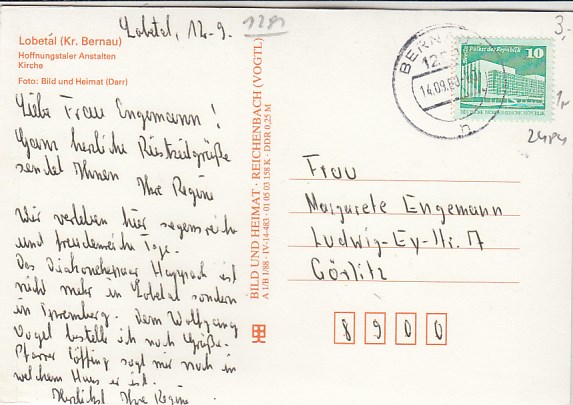 Lobetal, 12.9.
1281
3,-
Lobetal (Kr. Bernau)
Hoffnungstaler Anstalten
Kirche
Foto: Bild und Heimat (Darr)
Liebe Frau Engemann!
Ganz herzliche Grüße
sendet Ihnen Ihre Regine
Wir verleben hier segensreiche
und freudenreiche Tage.
Das ist
nicht mehr in Lobetal sondern
in Spremberg. Dem Wolfgang
Vogel bestelle ich noch Grüße.
Pfarrer sagt mir noch in
welchem Haus er ist.
Herzlichst Ihre Regine
BILD UND HEIMAT · REICHENBACH (VOGTL)
A 1/B 1/88 · IV-14-483 · 01 05 03 158 K · DDR 0,25 M
BERNAU
14.09.
Palast der Republik
10
DEUTSCHE DEMOKRATISCHE REPUBLIK
2484
Frau
Margarete Engemann
Ludwig-Ey-Str. 17
Görlitz
8900